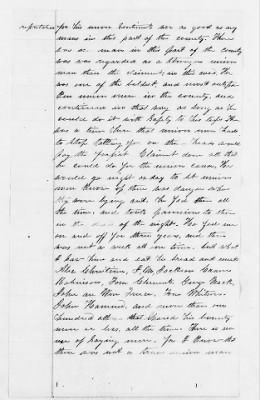 reputation for his union sentiments are as good as any
mans in this part of the county. There
was no man in this part of the county
was was regarded as a stronger union
man than the claimant, in this war. He
was one of the boldest and most outspo
ken union men in the county, and
continued in that way as long as he
could do it with safety to his life. There
was a time when that union men had
to stop talking or on the heads would
pay the forfeit. Claimant done all that
he could do for the union cause. He
would go night or day to let union
men know if there was danger when
they were lying out. He fed them all
the time, and took provisions to them
in the of the night. He fed me
on and off for three years, and there
was not a week all the time, but what
I have been and eat his bread and meat.
Alex Christian, J. M. Jackson,
Robinson, Tom Clement, George
John
John and more than one
hundred others that shared his bounty
more or less, all the time. There is no
use of saying more, for I know that
there was not a truer union man